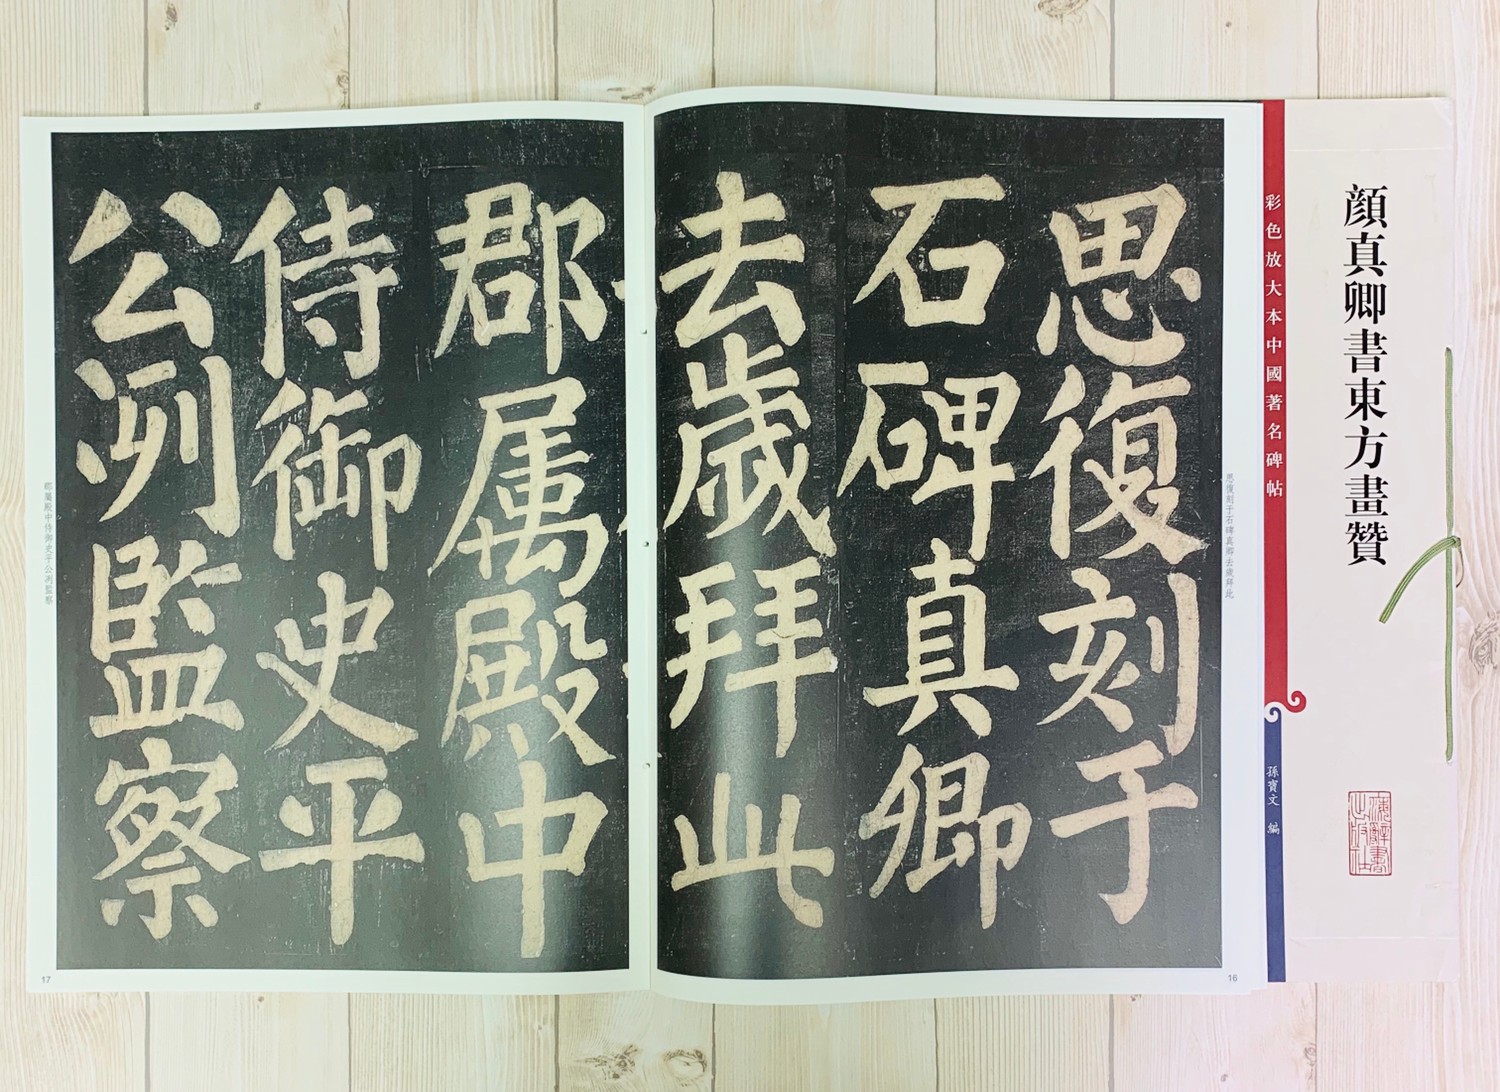 顏真卿書東方畫贊
彩色放大本中國著名碑帖
孫寶文 編
海辭書
出版社
思復刻于
石碑真卿
去歲拜此
思復刻于石碑真卿去歲拜此
16
郡屬殿中
侍御史平
公冽監察
郡屬殿中侍御史平公冽監察
17